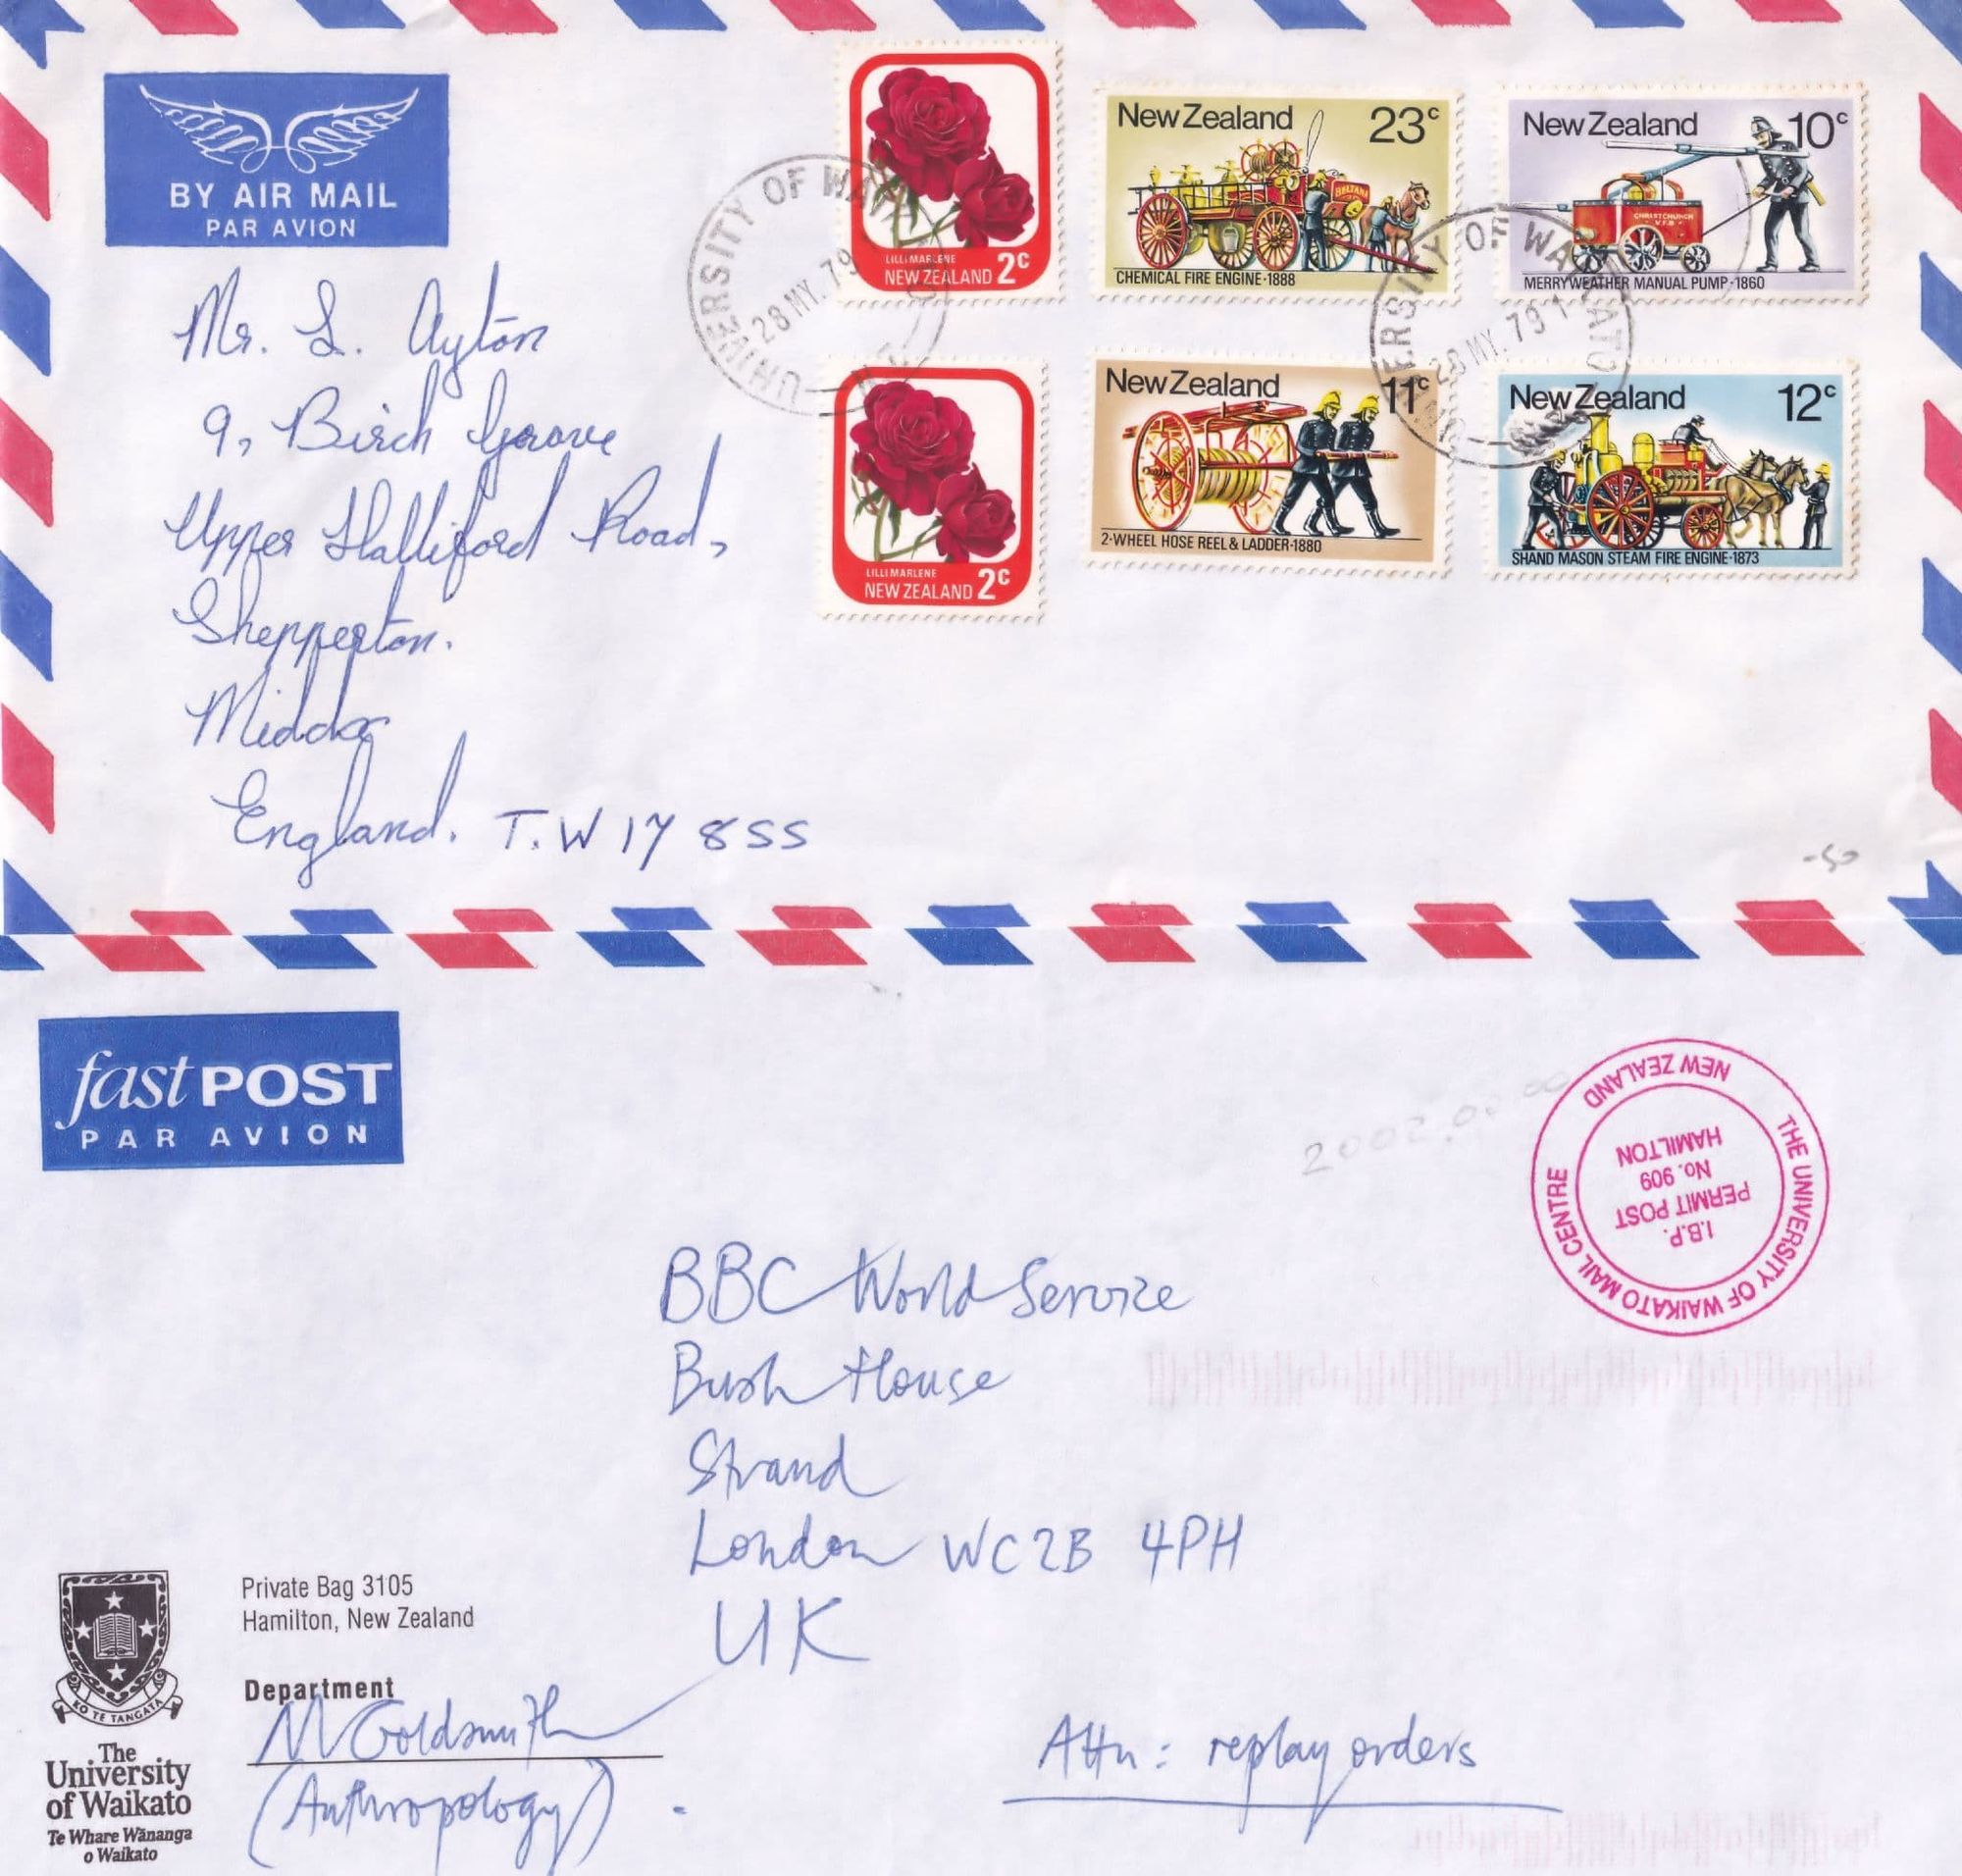 BY AIR MAIL
PAR AVION
LILLI MARLENE
NEW ZEALAND 2c
New Zealand 23c
BOLTANA
CHEMICAL FIRE ENGINE·1888
New Zealand 10c
CHRISTCHURCH
V.F.B
MERRYWEATHER MANUAL PUMP·1860
UNIVERSITY OF WAIKATO
28 MY. 79
UNIVERSITY OF WAIKATO
28 MY. 79 1
LILLI MARLENE
NEW ZEALAND 2c
New Zealand 11c
2-WHEEL HOSE REEL & LADDER·1880
New Zealand 12c
SHAND MASON STEAM FIRE ENGINE·1873
Mr. L. Ayton
9, Birch Grove
Upper Halliford Road,
Shepperton.
Middx
England. T.W 17 8SS
-50
fastPOST
PAR AVION
THE UNIVERSITY OF WAIKATO MAIL CENTRE
NEW ZEALAND
I.B.P.
PERMIT POST
No. 909
HAMILTON
BBC World Service
Bush House
Strand
London WC2B 4PH
UK
Private Bag 3105
Hamilton, New Zealand
Department
M Goldsmith
(Anthropology)
KO TE TANGATA
The
University
of Waikato
Te Whare Wānanga
o Waikato
Attn: replay orders